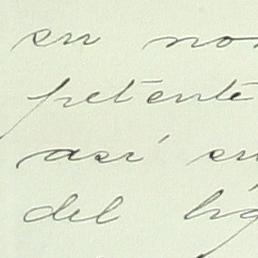 en no
petente
así en
del lig